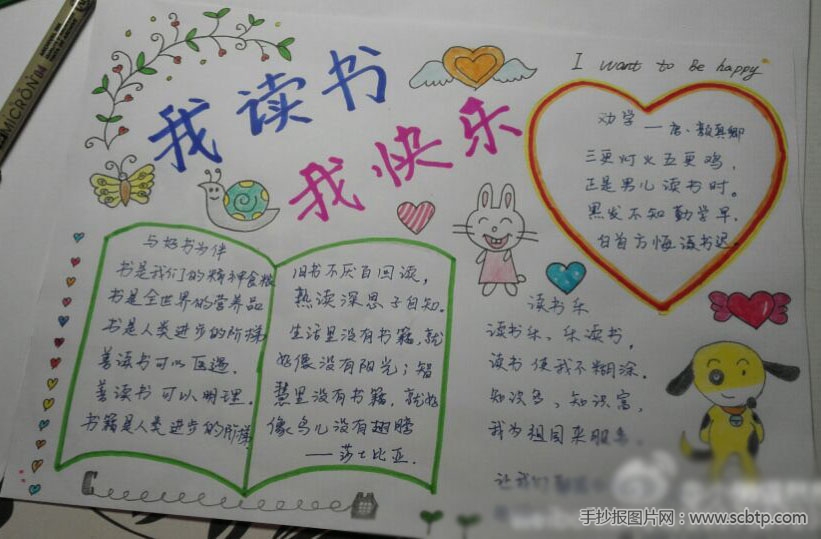 MICRON 04
我读书
我快乐
I want to be happy
劝学
——唐·颜真卿
三更灯火五更鸡,
正是男儿读书时。
黑发不知勤学早,
白首方悔读书迟。
与好书为伴
书是我们的精神食粮
书是全世界的营养品
书是人类进步的阶梯
善读书可以医愚.
善读书可以明理.
书籍是人类进步的阶梯
旧书不厌百回读,
熟读深思子自知.
生活里没有书籍,就
好像没有阳光;智
慧里没有书籍,就好
像鸟儿没有翅膀
——莎士比亚.
读书乐
读书乐、乐读书,
读书使我不糊涂.
知识多、知识富,
我为祖国来服务.
让我们
手抄报图片网:www.scbtp.com